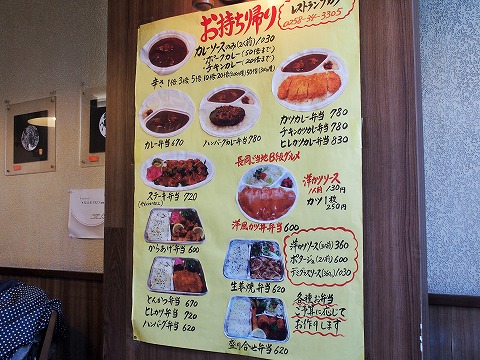 お持ち帰り
レストランナカタ
0258-34-3305
カレーソースのみ(2人前)1030
ポークカレー(50倍まで)
チキンカレー(20倍まで)
辛さ 1倍 3倍 5倍 10倍
カツカレー弁当 780
チキンカツカレー弁当 780
ヒレカツカレー弁当 830
カレー弁当 670
ハンバーグカレー弁当 780
長岡ご当地B級グルメ
洋かつソース
1人前 130円
カツ1枚
250円
ステーキ弁当 720
洋風かつ丼弁当 600
からあげ弁当 600
洋かつソース(3人前) 360
ポタージュ(2人前) 600
デミグラスソース 1030
生姜焼弁当 620
とんかつ弁当 670
ヒレカツ弁当 720
ハンバーグ弁当 620
各種お弁当
ご予算に応じて
お作りします
盛り合せ弁当 620